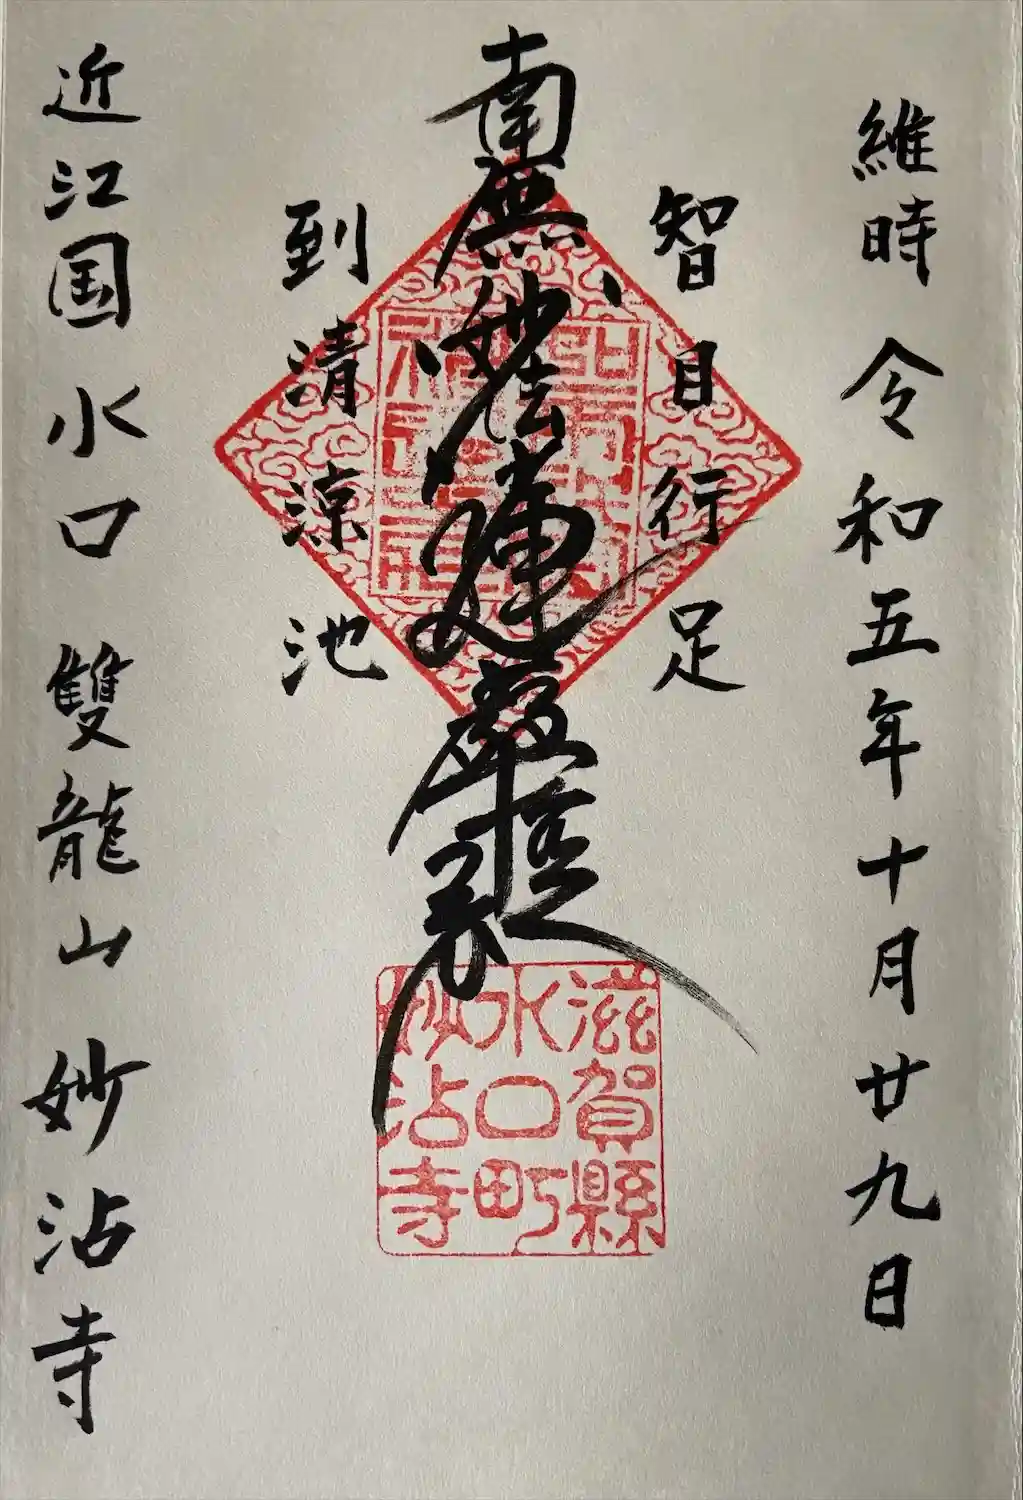 維時 令和五年十月廿九日
智目行足
南無妙法蓮華經
到清涼池
近江国水口 雙龍山 妙沾寺
滋賀縣
水口町
妙沾寺